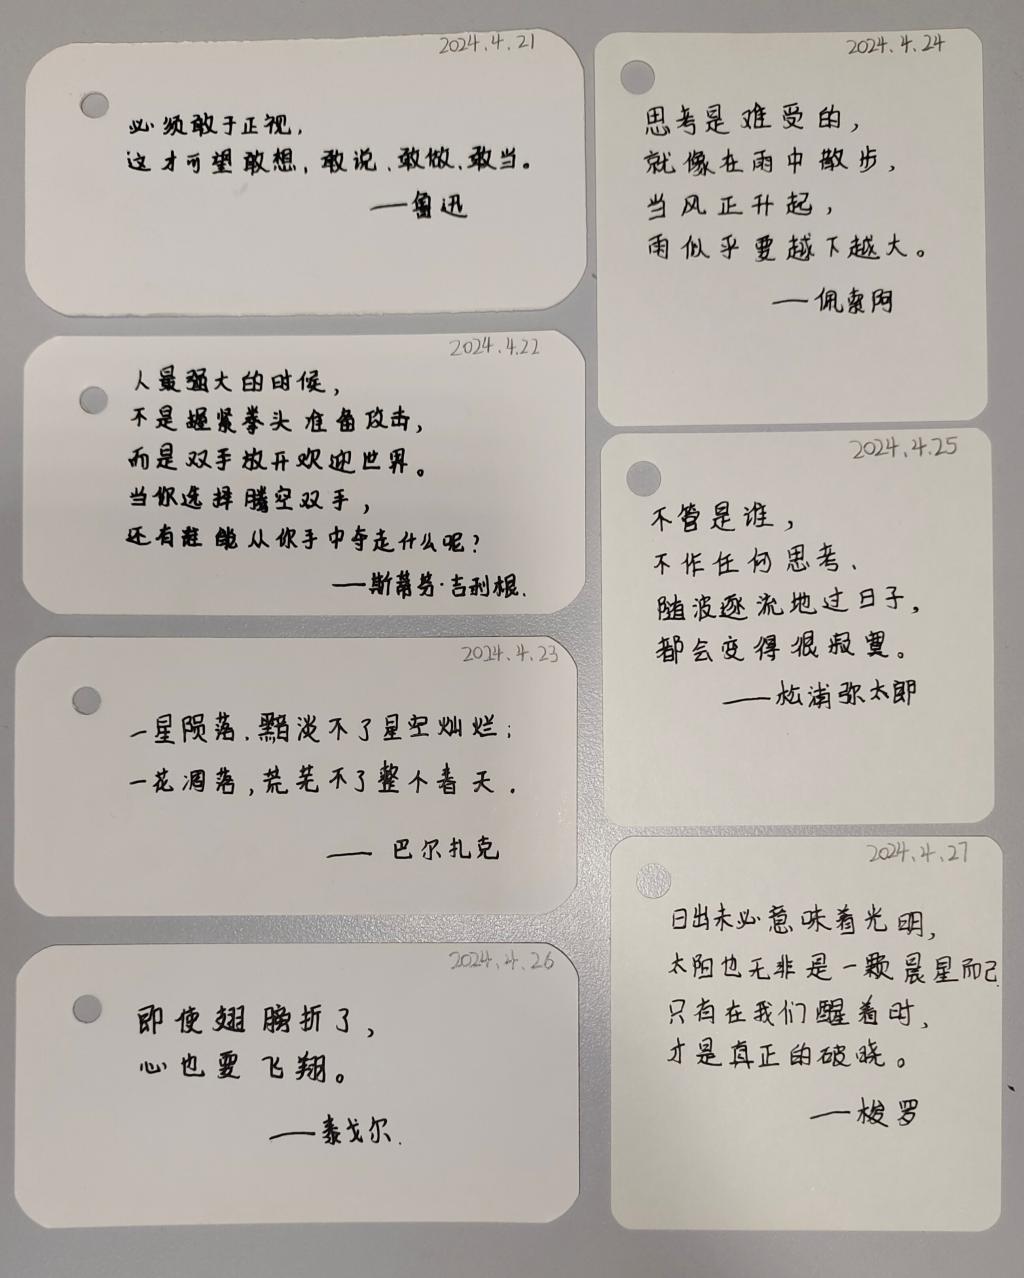 2024.4.21
必须敢于正视，
这才可望敢想，敢说、敢做、敢当。
——鲁迅
2024.4.22
人最强大的时候，
不是握紧拳头准备攻击，
而是双手放开欢迎世界。
当你选择腾空双手，
还有谁能从你手中夺走什么呢？
——斯蒂芬·吉利根.
2024.4.23
一星陨落、黯淡不了星空灿烂；
一花凋落，荒芜不了整个春天．
—— 巴尔扎克
2024.4.26
即使翅膀折了，
心也要飞翔。
——泰戈尔.
2024.4.24
思考是难受的，
就像在雨中散步，
当风正升起，
雨似乎要越下越大。
——佩索阿
2024.4.25
不管是谁，
不作任何思考、
随波逐流地过日子，
都会变得很寂寞。
——松浦弥太郎
2024.4.27
日出未必意味着光明，
太阳也无非是一颗晨星而已.
只有在我们醒着时，
才是真正的破晓。
——梭罗